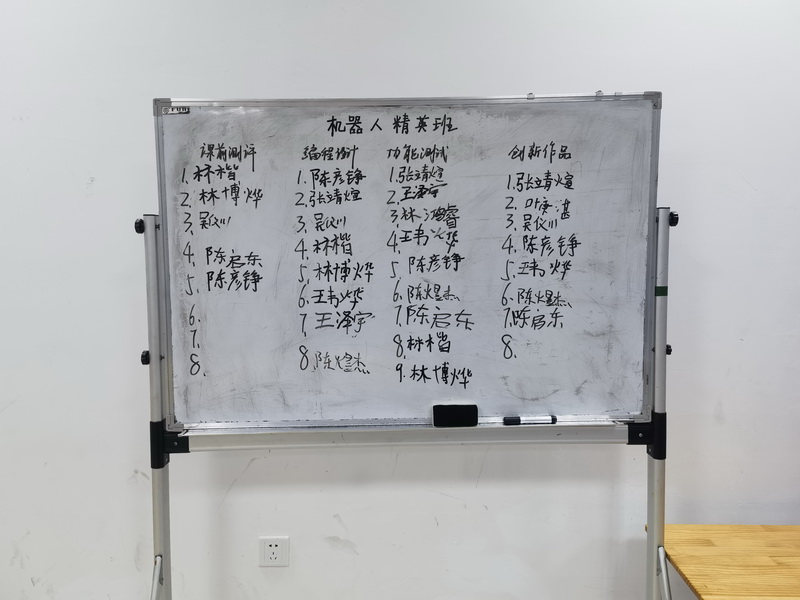 机器人精英班
课前测评
1. 林楷
2. 林博烨
3. 吴仪川
4. 陈启东
5. 陈彦铮
6.
7.
8.
编程设计
1. 陈彦铮
2. 张靖煊
3. 吴仪川
4. 林楷
5. 林博烨
6. 王韦烨
7. 王泽宇
8. 陈煜杰
功能测试
1. 张靖煊
2. 王泽宇
3. 林鸿睿
4. 王韦烨
5. 陈彦铮
6. 陈煜杰
7. 陈启东
8. 林楷
9. 林博烨
创新作品
1. 张靖煊
2. 叶庚湛
3. 吴仪川
4. 陈彦铮
5. 王韦烨
6. 陈煜杰
7. 陈启东
8.